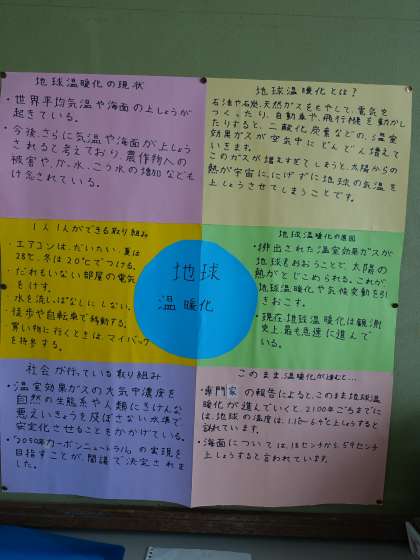 地球温暖化の現状
・世界平均気温や海面の上しょうが
起きている。
・今後、さらに気温や海面が上しょう
されると考えており、農作物への
被害や、か水、こう水の増加なども
けねんされている。
地球温暖化とは？
石油や石炭、天然ガスをもやして、電気を
つくったり、自動車や、飛行機を動かし
たりすると、二酸化炭素などの、温室
効果ガスが空気中に どんどん増えて
いきます。
このガスが増えすぎてしまうと、太陽からの
熱が宇宙に、にげずに地球の気温を
上しょうさせてしまうことです。
1人1人ができる取り組み
・エアコンは、だいたい、夏は
28℃、冬は20℃でつける。
・だれもいない部屋の電気
をけす。
水を流しっぱなしにしない。
徒歩や自転車で移動する。
買い物に行くときは、マイバック
を持参する。
地球温暖化の原因
・排出された温室効果ガスが
地球をおおうことで、太陽の
熱がとじこめられる。これが
地球温暖化や気候変動を引
きおこす。
・現在地球温暖化は観測
史上最も急速に進んで
いる。
地球
温暖化
社会が行っている取り組み
・温室効果ガスの大気中濃度を
自然の生態系や人類にきけんな
悪えいきょうを及ぼさない水準で
安定化させることをかかげている。
・「2050年カーボンニュートラル」の実現を
目指すことが、閣議で決定されま
した。
このまま温暖化が進むと…
・専門家の報告によると、このまま地球温
暖化が進んでいくと、2100年ごろまでに
は、地球の温度は、1.1℃〜6.4℃上しょうすると
言われています。
・海面については、18センチから、59センチ
上しょうすると言われています。